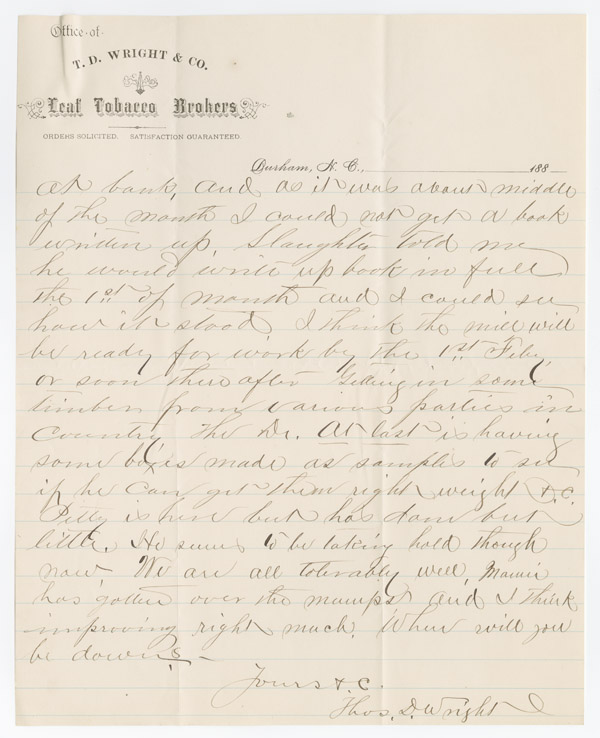 Office of
T. D. WRIGHT & CO.
Leaf Tobacco Brokers
ORDERS SOLICITED. SATISFACTION GUARANTEED.
Durham, N. C., 188
at bank, and as it was about middle
of the month I could not get a book
written up, Slaughter told me
he would write up book in full
the 1st of month and I could see
how it stood. I think the mill will
be ready for work by the 1st Feby,
or soon thereafter Getting in some
timber from various parties in
Country. The Dr. At last is having
some boxes made as samples to see
if he can get them right weight &.C.
Petty is here but has done but
little. He seems to be taking hold though
now. We are all tolerably well, Mamie
has gotten over the mumps and I think
improving right much. When will you
be down?
Yours &.C.
Thos. D. Wright